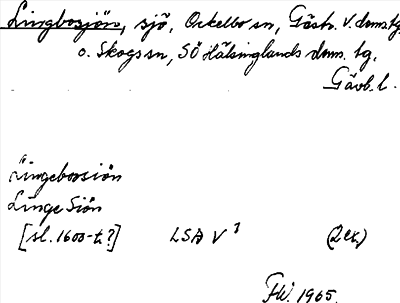 Lingbosjön, sjö, Ockelbo sn, Gästr. V. doms.tg
o. Skogs sn, SÖ Hälsinglands doms. tg.
Gävb. l.
Lingebosiön
Linge Siön
[sl. 1600-t.?] LSA V 1 (2 ex.)
FW. 1965.